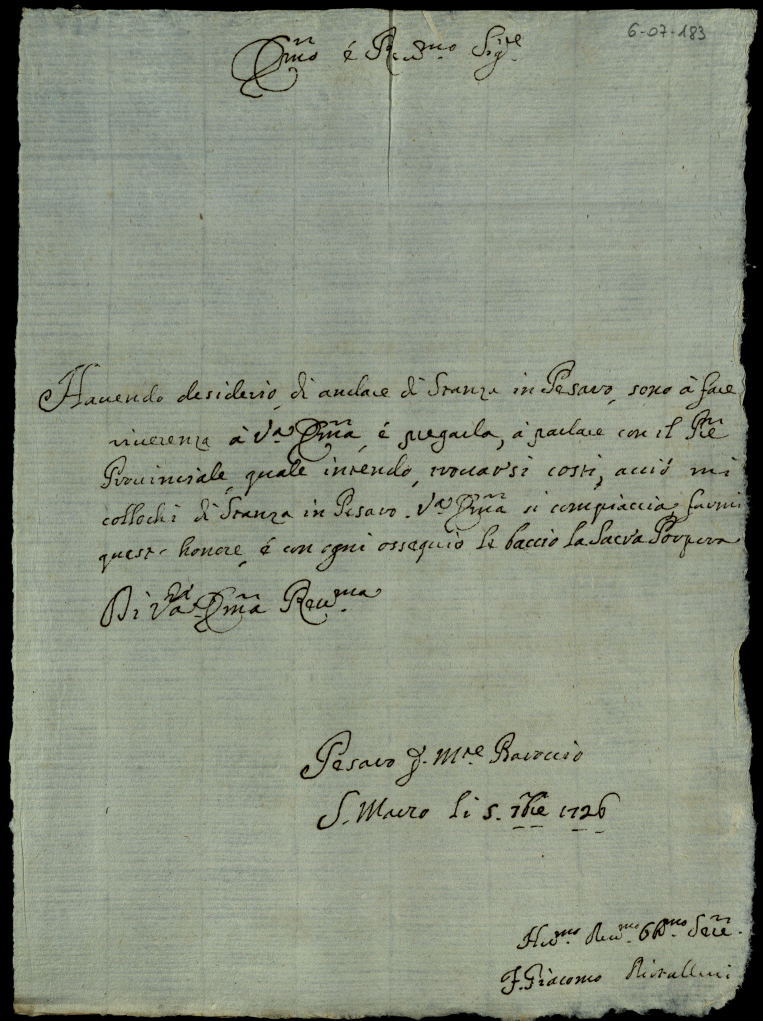 6-07-183
Emo é Revmo Sigre
Havendo desiderio, di andare di Stanza in Pesaro, sono à fare
riverenza à Va Ema, é pregarla, à parlare con il Pre
Provinciale, quale intendo, trovarsi costì, acciò mi
collochi di Stanza in Pesaro. Va Ema si compiaccia farmi
quest' honore, é con ogni ossequio le baccio la Sacra Porpora
Di Va Ema Revma
Pesaro p. Mte Baroccio
S. Marco li 5. 7bre 1726
Humo Devmo Obmo Sre
F. Giacomo